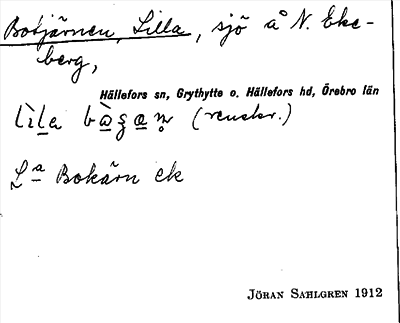 Botjärnen, Lilla, sjö å N. Eke-
berg,
Hällefors sn, Grythytte o. Hällefors hd, Örebro län
(renskr.)
La Bokärn ek
JÖRAN SAHLGREN 1912